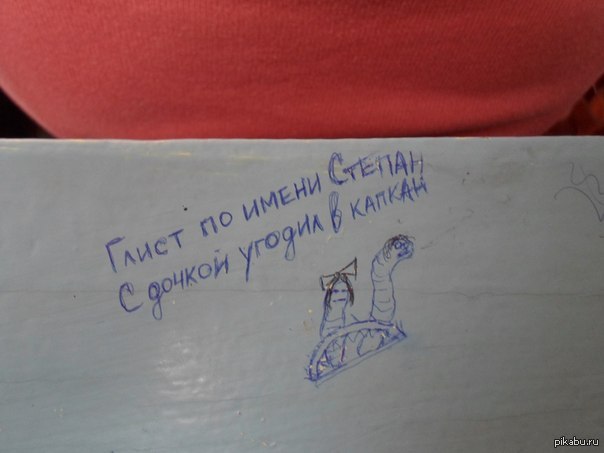 Глист по имени Степан
С дочкой угодил в капкан
pikabu.ru